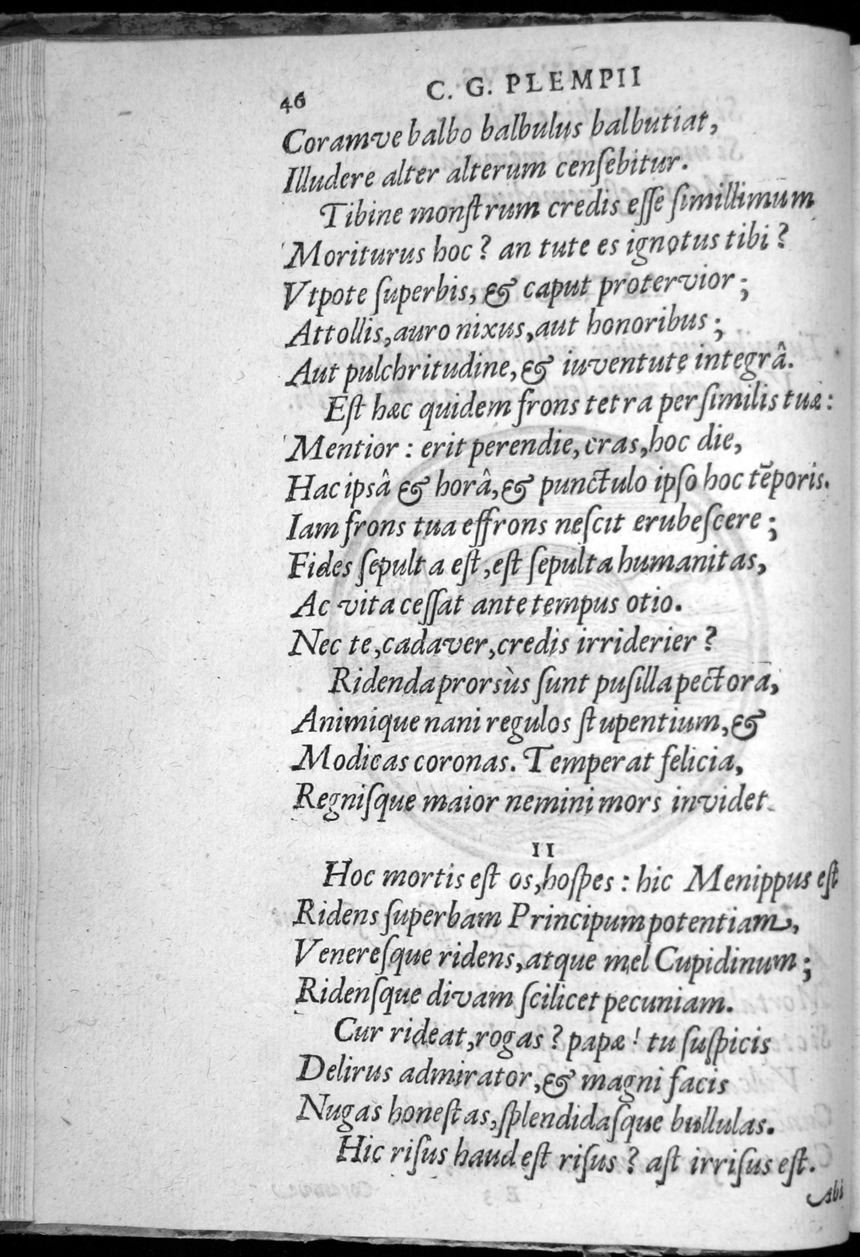 46 C. G. PLEMPII
Coramve balbo balbulus balbutiat,
Illudere alter alterum cenſebitur.
Tibine monſtrum credis eſſe ſimillimum
Moriturus hoc? an tute es ignotus tibi?
Vtpote ſuperbis, & caput protervior;
Attollis, auro nixus, aut honoribus;
Aut pulchritudine, & iuventute integrâ.
Eſt hæc quidem frons tetra perſimilis tuæ:
Mentior: erit perendie, cras, hoc die,
Hac ipsâ & horâ, & punctulo ipſo hoc tēporis.
Iam frons tua effrons neſcit erubeſcere;
Fides ſepulta eſt, eſt ſepulta humanitas,
Ac vita ceſſat ante tempus otio.
Nec te, cadaver, credis irriderier?
Ridenda prorsùs ſunt puſilla pectora,
Animique nani regulos ſtupentium, &
Modicas coronas. Temperat felicia,
Regniſque maior nemini mors invidet.
II
Hoc mortis eſt os, hoſpes: hic Menippus eſt
Ridens ſuperbam Principum potentiam,
Venereſque ridens, atque mel Cupidinum;
Ridenſque divam ſcilicet pecuniam.
Cur rideat, rogas? papæ! tu ſuſpicis
Delirus admirator, & magni facis
Nugas honeſtas, ſplendidaſque bullulas.
Hic riſus haud eſt riſus? aſt irriſus eſt.
Abi